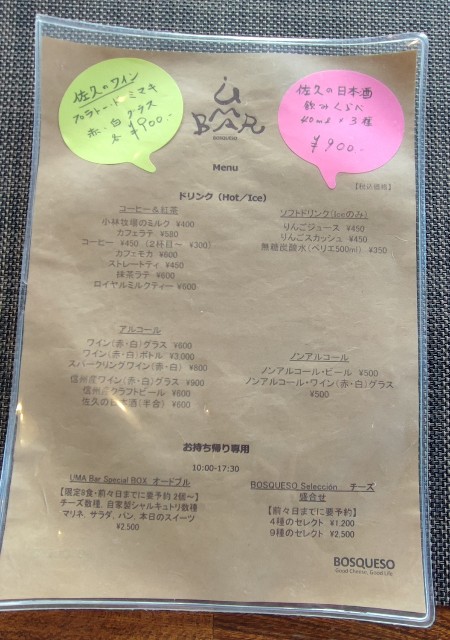 佐久のワイン
アルラトード ミマキ
赤・白 グラス
各 ¥900.
UMA
BAR
BOSQUESO
佐久の日本酒
飲みくらべ
40ml × 3種
¥900.
Menu
【税込価格】
ドリンク (Hot/Ice)
コーヒー＆紅茶
小林牧場のミルク ¥400
カフェラテ ¥580
コーヒー ¥450 (2杯目～ ¥300)
カフェモカ ¥600
ストレートティ ¥450
抹茶ラテ ¥600
ロイヤルミルクティー ¥600
ソフトドリンク (Iceのみ)
りんごジュース ¥450
りんごスカッシュ ¥450
無糖炭酸水(ペリエ500ml) ¥350
アルコール
ワイン(赤・白)グラス ¥600
ワイン(赤・白)ボトル ¥3,000
スパークリングワイン(赤・白) ¥800
信州産ワイン(赤・白)グラス ¥900
信州産クラフトビール ¥600
佐久の日本酒(半合) ¥600
ノンアルコール
ノンアルコール・ビール ¥500
ノンアルコール・ワイン(赤・白)グラス
¥500
お持ち帰り専用
10:00-17:30
UMA Bar Special BOX オードブル
【限定8食・前々日までに要予約 2個～】
チーズ数種、自家製シャルキュトリ数種
マリネ、サラダ、パン、本日のスイーツ
¥2,500
BOSQUESO Selección チーズ
盛合せ
【前々日までに要予約】
4種のセレクト ¥1,200
9種のセレクト ¥2,500
BOSQUESO
Good Cheese, Good Life